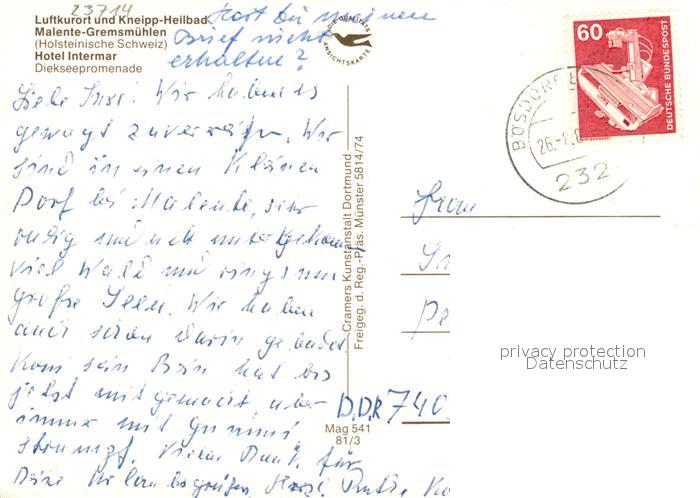 23714
Hast Du meinen
Brief nicht
erhalten?
Luftkurort und Kneipp-Heilbad
Malente-Gremsmühlen
(Holsteinische Schweiz)
Hotel Intermar
Diekseepromenade
DIE QUALITÄTS
ANSICHTSKARTE
60
DEUTSCHE BUNDESPOST
BOSDORF
26.-8.
232
Liebe Wir haben es
gewagt zu verreisen. Wir
sind in einen kleinen
Dorf bei Malente, sehr
ruhig und nett untergekom.
viel Wald und ringsum
große Seen. Wir haben
auch schon darin gebadet
sein Bein hat bis
jetzt mitgemacht aber
immer mit Gummi
strumpf. Vielen Dank für
Deine Herzl.
Cramers Kunstanstalt Dortmund
Freigeg. d. Reg.-Präs. Münster 5814/74
Mag 541
81/3
Frau
DDR 740
privacy protection
Datenschutz